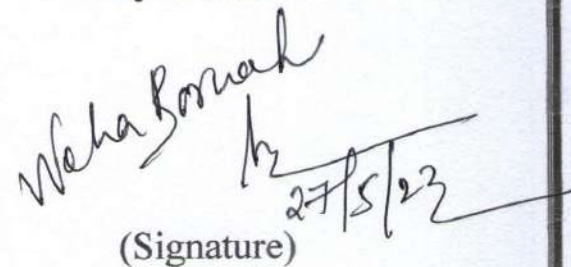 Neha Borruah
27/5/23
(Signature)